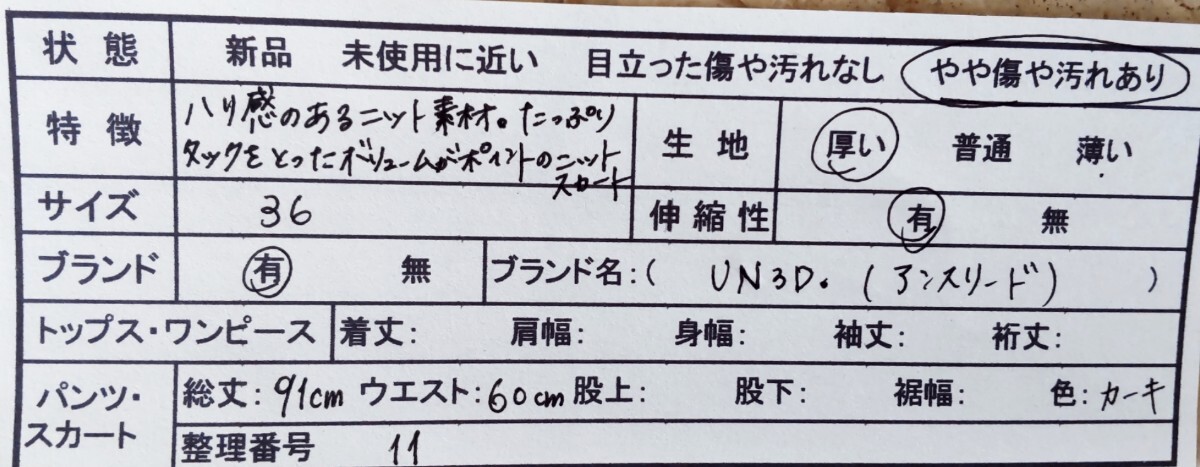 状態 新品 未使用に近い 目立った傷や汚れなし やや傷や汚れあり
特徴 ハリ感のあるニット素材。たっぷり
タックをとったボリュームがポイントのニット
スカート
生地 厚い 普通 薄い
サイズ 36 伸縮性 有 無
ブランド 有 無 ブランド名:( UN3D. (アンスリード) )
トップス・ワンピース 着丈: 肩幅: 身幅: 袖丈: 裄丈:
パンツ・
スカート
総丈:91cm ウエスト:60cm 股上: 股下: 裾幅: 色:カーキ
整理番号 11